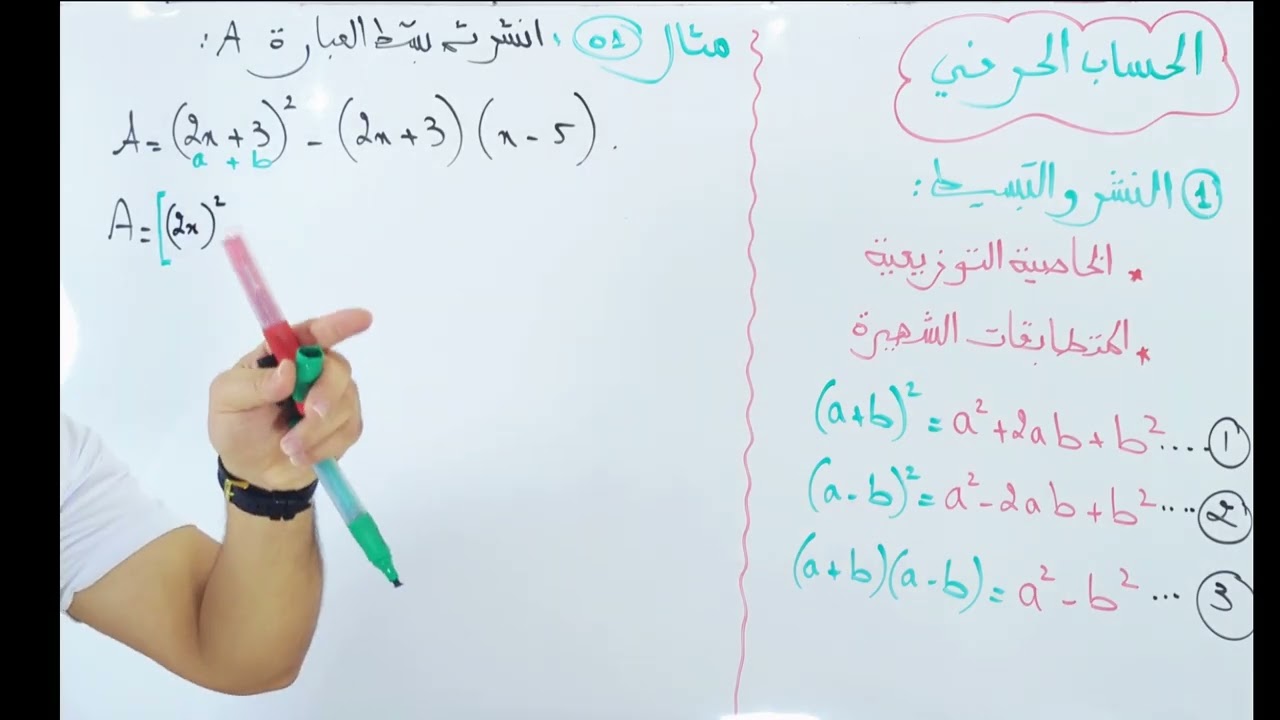 الحساب الحرفي
① النشر والتبسيط :
* الخاصية التوزيعية
* المتطابقات الشهيرة
(a+b)² = a² + 2ab + b² .... ①
(a-b)² = a² - 2ab + b² .... ②
(a+b)(a-b) = a² - b² ... ③
مثال 01 : انشر ثم بسّط العبارة A :
A = (2x + 3)² - (2x + 3)(x - 5) .
a + b
A = [(2x)²